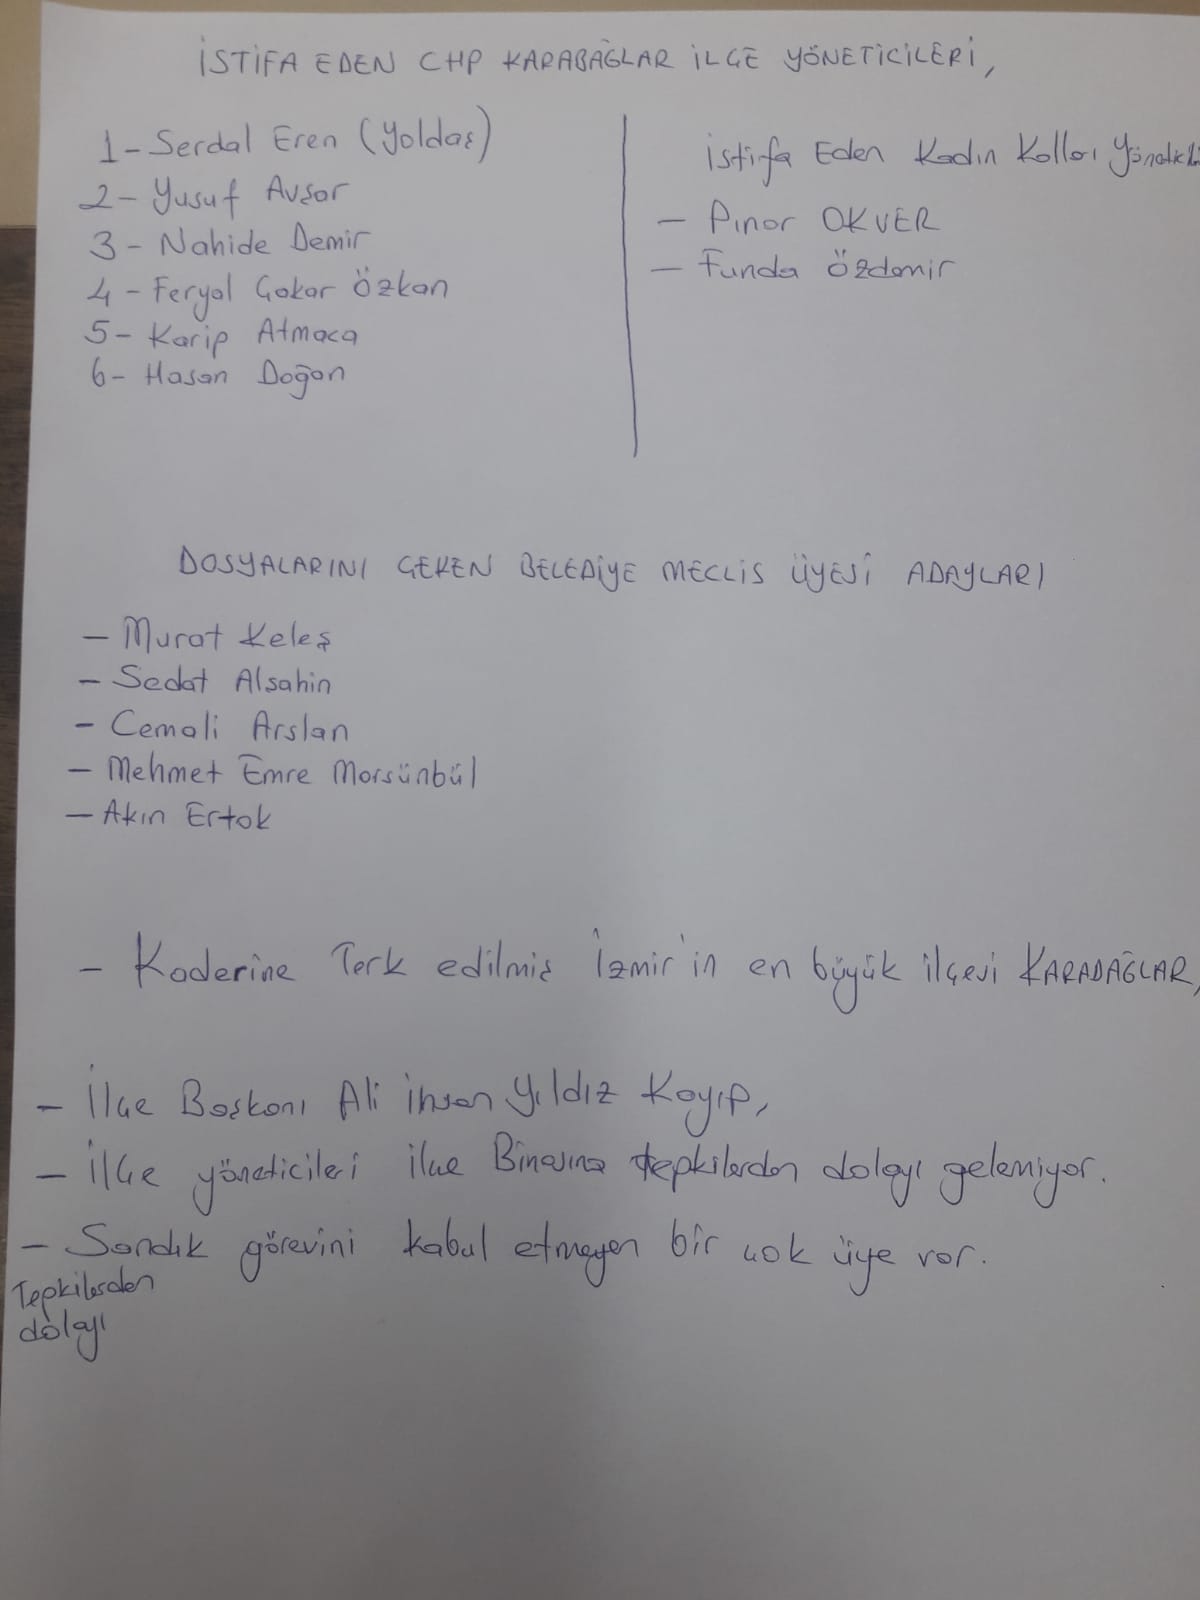 İSTİFA EDEN CHP KARABAĞLAR İLÇE YÖNETİCİLERİ,
1- Serdal Eren (Yoldaş)
2- Yusuf Avşar
3- Nahide Demir
4- Feryal Çakar Özkan
5- Karip Atmaca
6- Hasan Doğan
İstifa Eden Kadın Kolları
- Pınar OKVER
- Funda Özdemir
DOSYALARINI ÇEKEN BELEDİYE MECLİS ÜYESİ ADAYLARI
- Murat Keleş
- Sedat Alsahin
- Cemali Arslan
- Mehmet Emre Morsünbül
- Akın Ertok
- Kaderine Terk edilmiş İzmir'in en büyük ilçesi KARABAĞLAR,
- İlçe Başkanı Ali İhsan Yıldız Kayıp,
- İlçe yöneticileri ilçe Binasına tepkilerden dolayı gelemiyor.
- Sandık görevini kabul etmeyen bir çok üye var.
Tepkilerden
dolayı